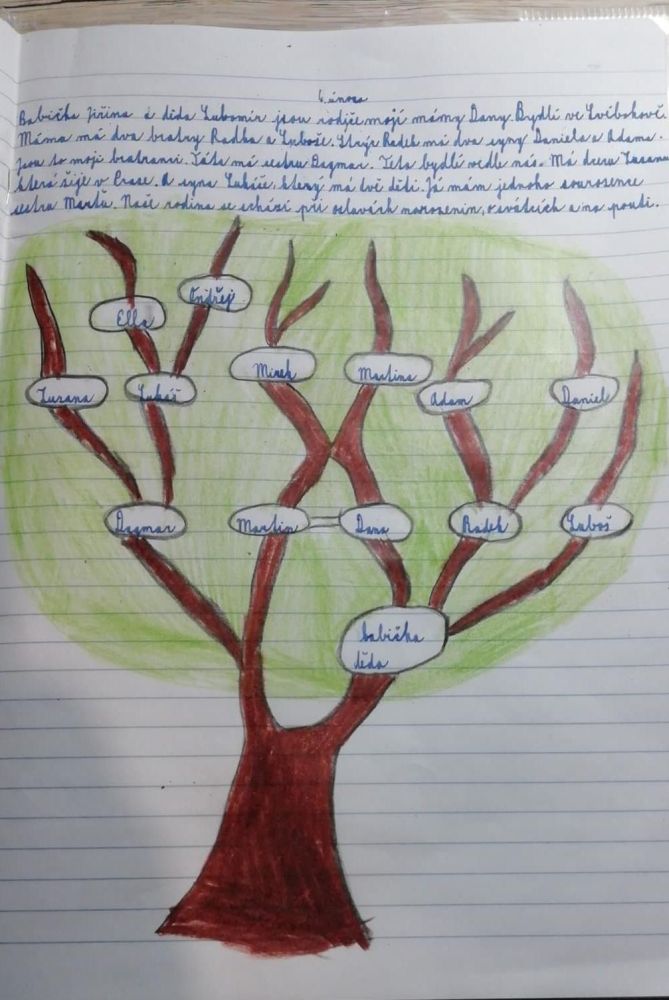 6. února
Babička Jiřina a děda Lubomír jsou rodiče mojí mámy Dany. Bydlí ve
Máma má dva bratry Radka a Luboše. Strýc Radek má dva syny Daniela a Adama.
Jsou to moji bratranci. Táta má sestru Dagmar. Teta bydlí vedle nás. Má dceru Zuzanu
která šije v Praze. A syna Lukáše, který má dvě děti. Já mám jednoho sourozence
sestru Naše rodina se schází při oslavách narozenin, svátcích a na pouti.
Ondřej
Ella
Mirek
Martina
Zuzana
Lukáš
Adam
Daniel
Dagmar
Martin
Dana
Radek
Luboš
babička
děda